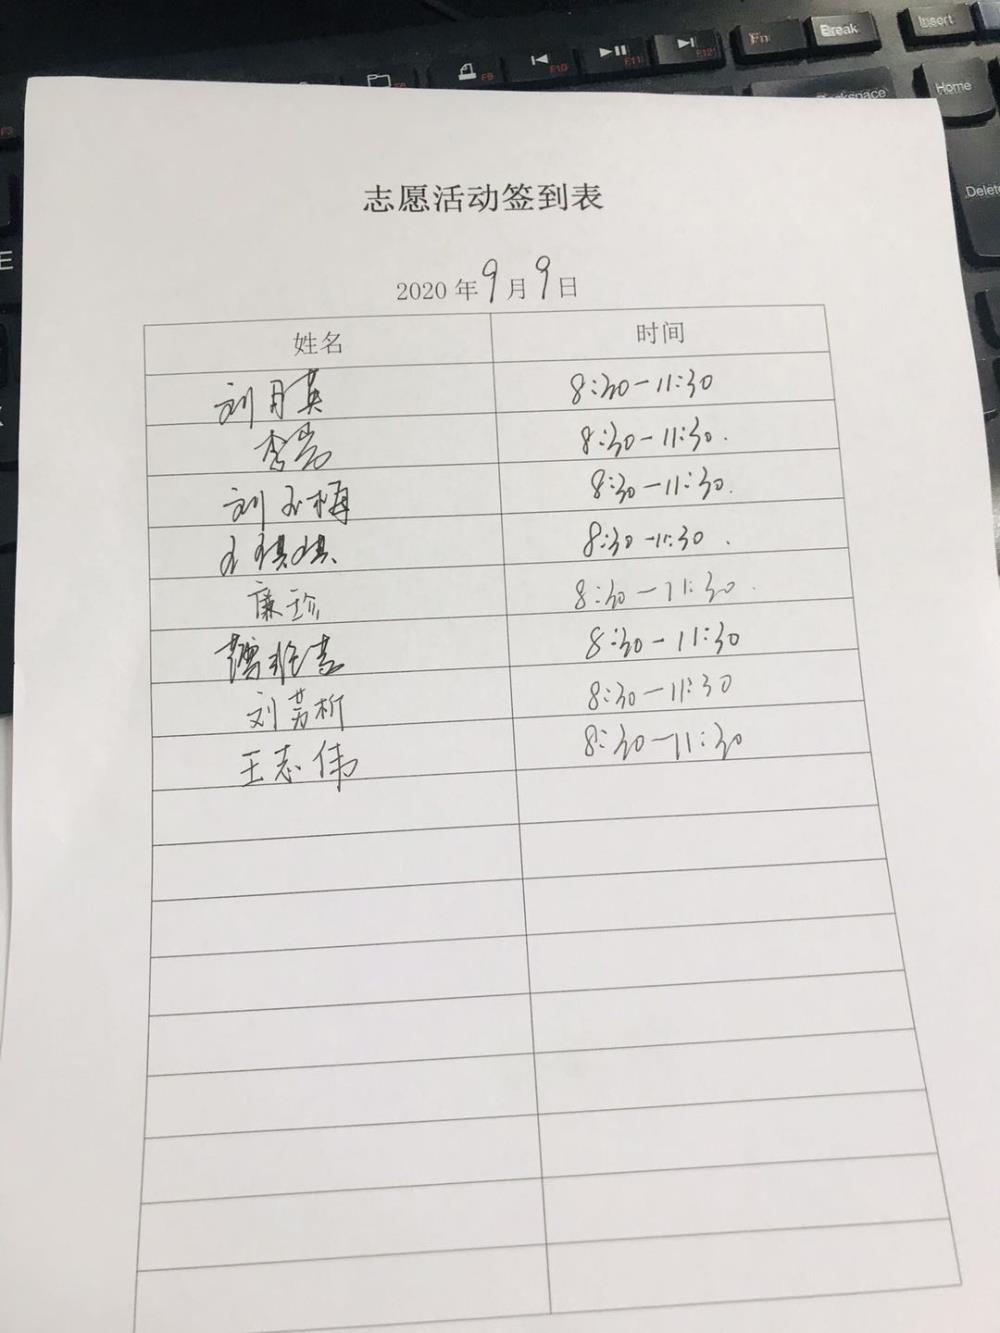 Insert
Break
Fn
F12
F11
F10
F9
Home
Backspace
Delete
F3
E
志愿活动签到表
2020年9月9日
姓名 时间
刘月英 8:30-11:30
李岩 8:30-11:30.
刘玉梅 8:30-11:30.
王琪琪 8:30-11:30.
廉珍 8:30-11:30.
8:30-11:30
刘芳析 8:30-11:30
王志伟 8:30-11:30